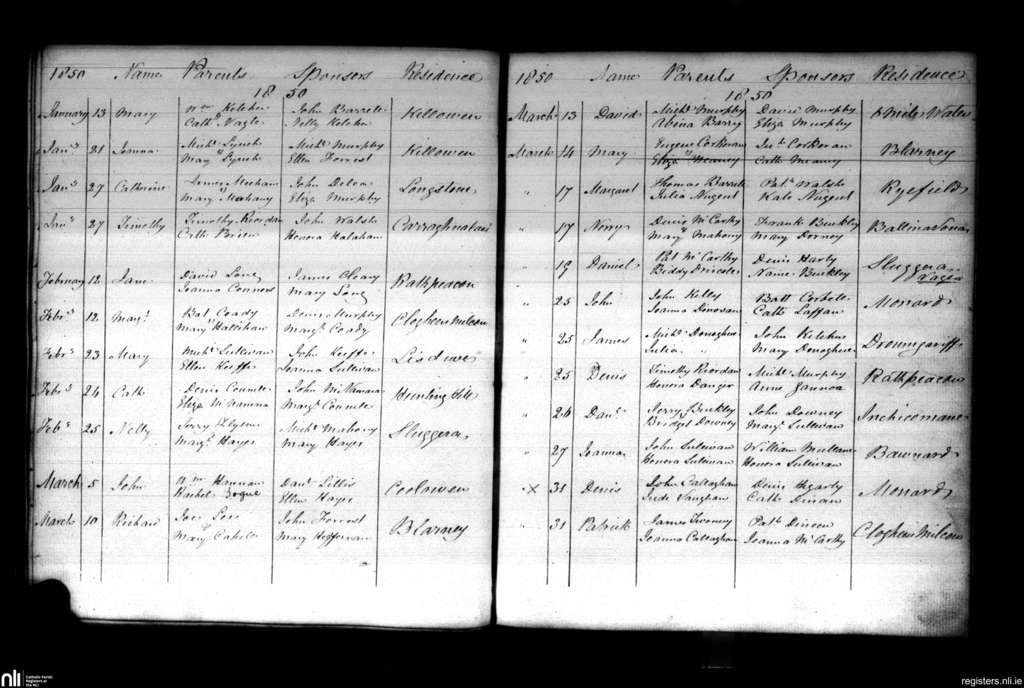 1850 Name Parents Sponsors Residence
18 50
January 13 Mary Wm Keleher John Barrett Killowen
Cath Nagle Nelly Keleher
Jany 21 Joanna Michl Lynch Michl Murphy Killowen
Mary Lynch Ellen Forrest
Jany 27 Catherine James Meehan John Delea Longstone
Mary Mahony Eliza Murphy
Jany 27 Timothy Timothy Riordan John Walsh
Cath Brien Honora Halahan
February 12 Jane David Long James Cleary Rathpeacon
Joanna Connors Mary Long
Febry 12 Margt Bat Coady Denis Murphy Clogheenmilcon
Mary Hallihan Margt Coady
Febry 23 Mary Michl Sullivan John Keeffe
Ellen Keeffe Joanna Sullivan
Febry 24 Cath Denis John McNamara Hunting Hill
Eliza McNamara Margt
Feby 25 Nelly Jerry Michl Mahony Sluggera
Margt Hayes Mary Hayes
March 5 John Wm Hannan Danl Lillis Coolowen
Rachel Ellen Hayes
March 10 Richard Joe Lee John Forrest Blarney
Mary Cahill Mary Heffernan
1850 Name Parents Sponsors Residence
18 50
March 13 David Michl Murphy David Murphy 6 Mile Water
Abina Barry Eliza Murphy
March 14 Mary Eugene Corkoran Corkoran Blarney
Eliza Meaney Cath Meaney
" 17 Margaret Thomas Barrett Patk Walsh Ryefield
Julia Nugent Kate Nugent
" 17 Norry Denis McCarthy Frank Buckley
Mary Mahony Mary Dorney
" 19 Daniel Pat McCarthy Denis Harty Sluggera
Biddy Driscoll Buckley
" 25 John John Kelly Batt Corbett Monard
Joanna Donovan Cath Laffan
" 25 James Michl Donoghue John Kelcher Dromgariff
Julia " Mary Donoghue
" 25 Denis Timothy Riordan Michl Murphy Rathpeacon
Honora Danger Anne
" 26 Danl Jerry Buckley John Downey
Bridget Downey Margt Sullivan
" 27 Joanna John Sullivan William Mullane Bawnard
Honora Sullivan Honora Sullivan
" x 31 Denis John Callaghan Denis Hegarty Monard
Jude Vaughan Cath Dinan
" 31 Patrick James Twomey Patk Dineen Clogheenmilcon
Joanna Callaghan Joanna McCarthy
nli
Catholic Parish
Registers at
the NLI
registers.nli.ie